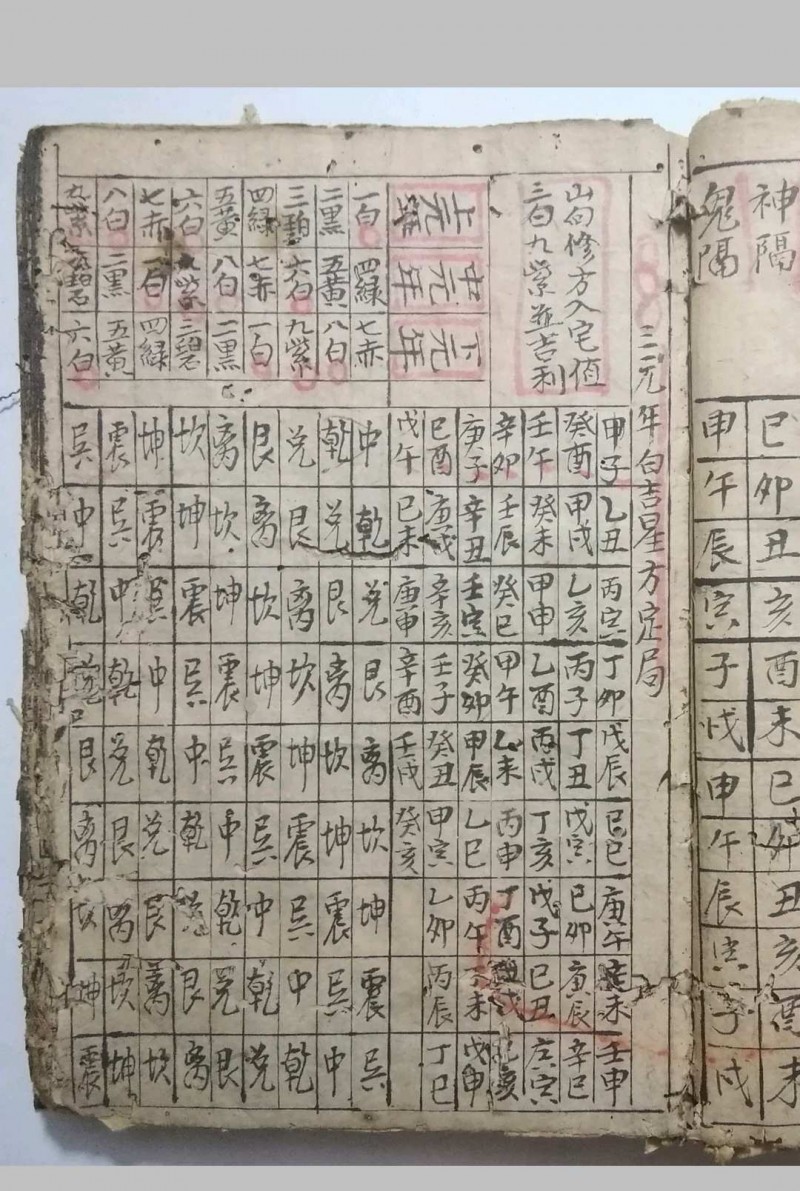 神隔 巳 卯 丑 亥 酉 未 巳 卯 丑 亥 酉 未
鬼隔 申 午 辰 寅 子 戌 申 午 辰 寅 子 戌
三元年白吉星方定局
山向修方入宅值
三白九紫並吉利
甲子 乙丑 丙寅 丁卯 戊辰 己巳 庚午 辛未 壬申
癸酉 甲戌 乙亥 丙子 丁丑 戊寅 己卯 庚辰 辛巳
壬午 癸未 甲申 乙酉 丙戌 丁亥 戊子 己丑 庚寅
辛卯 壬辰 癸巳 甲午 乙未 丙申 丁酉 戊戌 己亥
庚子 辛丑 壬寅 癸卯 甲辰 乙巳 丙午 丁未 戊申
己酉 庚戌 辛亥 壬子 癸丑 甲寅 乙卯 丙辰 丁巳
上元年 中元年 下元年 戊午 己未 庚申 辛酉 壬戌 癸亥
一白 四緑 七赤 中 乾 兑 艮 离 坎 坤 震 巽
二黑 五黄 八白 乾 兑 艮 离 坎 坤 震 巽 中
三碧 六白 九紫 兑 艮 离 坎 坤 震 巽 中 乾
四緑 七赤 一白 艮 离 坎 坤 震 巽 中 乾 兑
五黄 八白 二黑 离 坎 坤 震 巽 中 乾 兑 艮
六白 九紫 三碧 坎 坤 震 巽 中 乾 兑 艮 离
七赤 一白 四緑 坤 震 巽 中 乾 兑 艮 离 坎
八白 二黑 五黄 震 巽 中 乾 兑 艮 离 坎 坤
九紫 三碧 六白 巽 中 乾 兑 艮 离 坎 坤 震